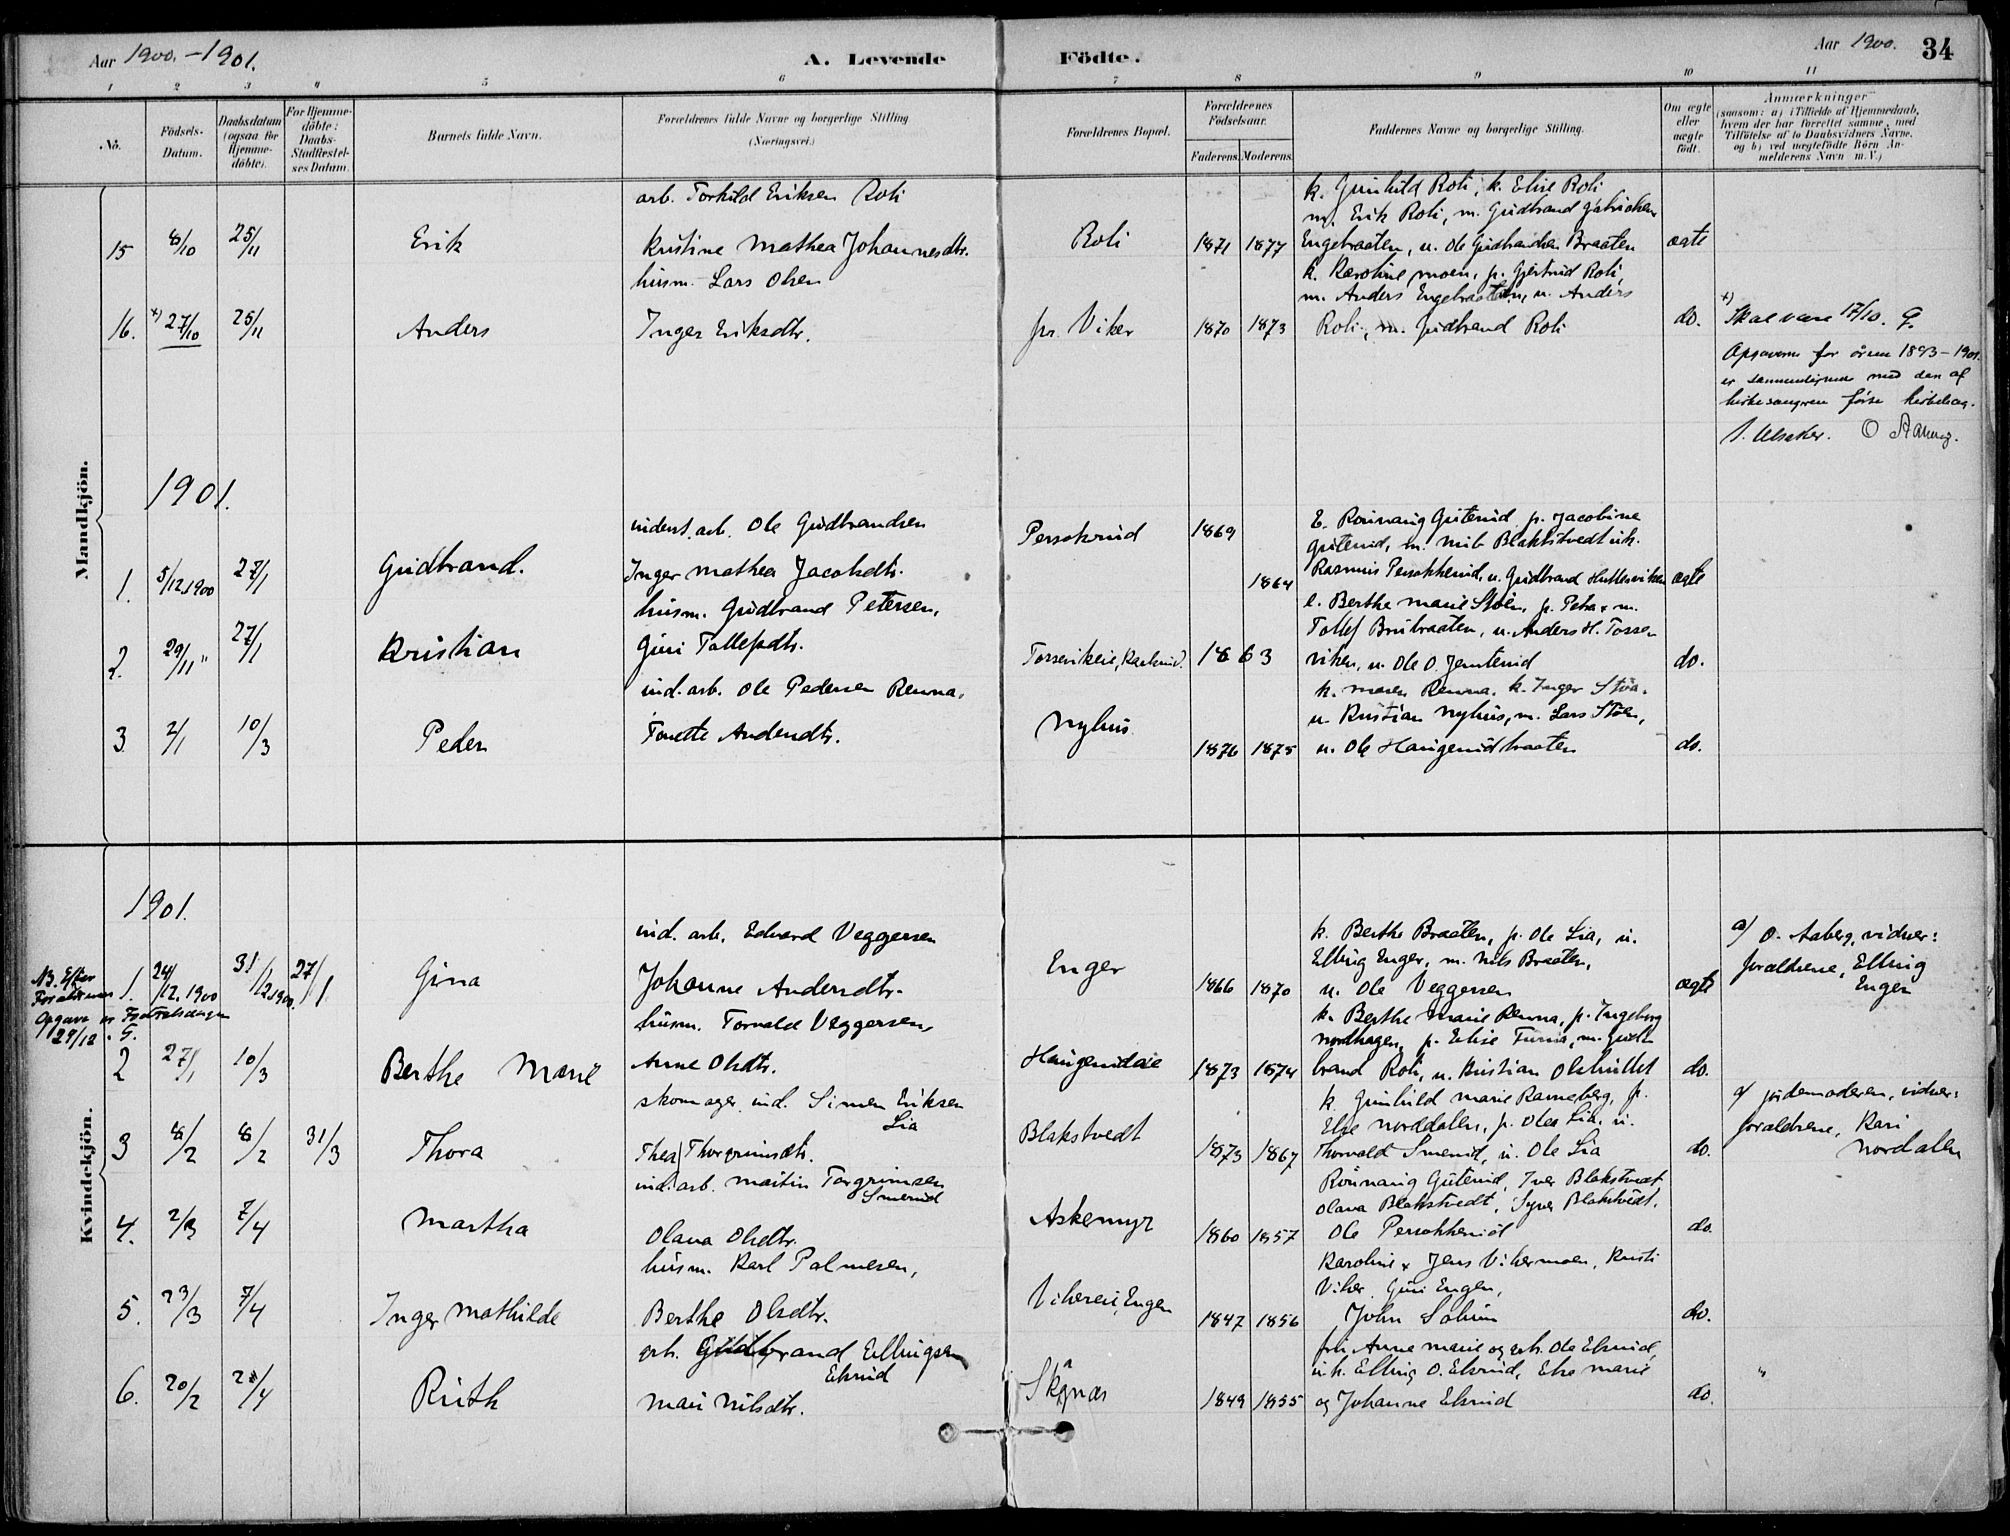 Aar 1900.-1901.
A. Levende Födte.
Aar 1900. 34
1 2 3 4 5 6 7 8 9 10 11
No.
Födsels-Datum.
Daabsdatum (ogsaa for Hjemme-döbte).
For Hjemme-döbte: Daabs-Stadfæstel-ses Datum.
Barnets fulde Navn.
Forældrenes fulde Navne og borgerlige Stilling (Næringsvei.)
Forældrenes Bopæl.
Forældrenes Födselsaar.
Faderens. Moderens.
Faddernes Navne og borgerlige Stilling.
Om ægte eller uægte födt.
Anmærkninger
(saasom: a) i Tilfælde af Hjemmedaab, hvem der har forrettet samme, med Tilföielse af to Daabsvidners Navne, og b) ved uægtefödte Börn Anmelderens Navn m. V.)
Mandkjön.
arb. Torkild Eriksen Roli
k. Gunhild Roli, k. Elise Roli
m. Erik Roli, m. Gudbrand
15 8/10 25/11 Erik Kristine Mathea Johannesdtr. Roli 1871 1877 Engebraaten, u. Ole Gudbrandsen Braaten ægte
husm. Lars Olsen
k. Karoline Moen, p. Gjertrud Roli,
m. Anders Engebraaten, u. Anders
16. x) 27/10 25/11 Anders Inger Eriksdtr. pr. Viker 1870 1873 Roli, m. Gudbrand Roli do. x) Skal være 17/10. G.
Opgaverne for årene 1893-1901
er sammenlignede med den af
kirkesangeren førte kirkebog.
O Aaberg.
1901.
inderst. arb. Ole Gudbrandsen Persokrud 1869
p. Jacobine
1. 5/12.1900 27/1 Gudbrand. Inger Mathea Jacobsdtr. 1864 Rasmus Persokkerud, u. Gudbrand ægte
husm. Gudbrand Petersen,
e. Berthe Marie Stöen, p. Petra x m.
Tollef Brubraaten, u. Anders H. Tosse-
2. 29/11 " 27/1 Kristian Guri Tollefsdtr. 1863 viken, u. Ole O. do.
ind. arb. Ole Pedersen Renna,
k. Maren Renna, k. Inger
u. Kristian Nyhus, m. Lars Stöen,
3 2/1 10/3 Peder Tonette Andersdtr. Nyhus 1876 1875 u. Ole Haugerudbraaten do.
Kvindekjön.
1901.
ind. arb. Edvard Veggersen
k. Berthe Braaten, p. Ole Lia, u.
Elling Enger, m. Nils Braaten,
a) O. Aaberg, vidner:
forældrene, Elling
Enger
NB. Efter
Forældrenes
Opgave er Fødselsdagen
29/12. G.
1. 24/12.1900 31/12.1900 27/1 Gina Johanne Andersdtr. Enger 1866 1870 u. Ole Veggersen ægte
husm. Torvald Veggersen,
k. Berthe Marie Renna, p. Ingeborg
Nordhagen, p. Elise m. Gud-
2 27/1 10/3 Berthe Marie Anne Olsdtr. 1873 1874 brand Roli, u. Kristian do.
skomager ind. Simen Eriksen
Lia
k. Gunhild Marie Ramberg, p.
Else Norddalen, p. Olea Lia, u.
a) jordemoderen, vidner:
forældrene, Kari
Nordalen
3 8/2 8/2 31/3 Thora Thea Thorgrimsdtr. Blakstvedt 1873 1867 Thorvald Smerud, u. Ole Lia do.
ind. arb. Martin Torgrimsen
Smerud
Rönnaug Guterud, Iver Blakstvedt
Olava Blakstvedt, Syver Blakstvedt.
4. 2/3 7/4 Martha Olava Olsdtr. Askemyr 1860 1857 Ole Persokkerud do.
husm. Karl Palmesen,
Karoline x Jens Vikermoen, Kristi
Viker, Guri Engen,
5. 23/3 7/4 Inger Mathilde Berthe Olsdtr. Vikereie, Engen 1847 1856 John do.
grb. Gudbrand Ellingsen
Elsrud
frk Anne Marie og grb. Ole Elsrud,
u.k. Elling O. Elsrud, Else Marie
6. 20/2 28/4 Ruth Mari Nilsdtr. Skagnæs 1849 1855 og Johanne Elsrud do. "